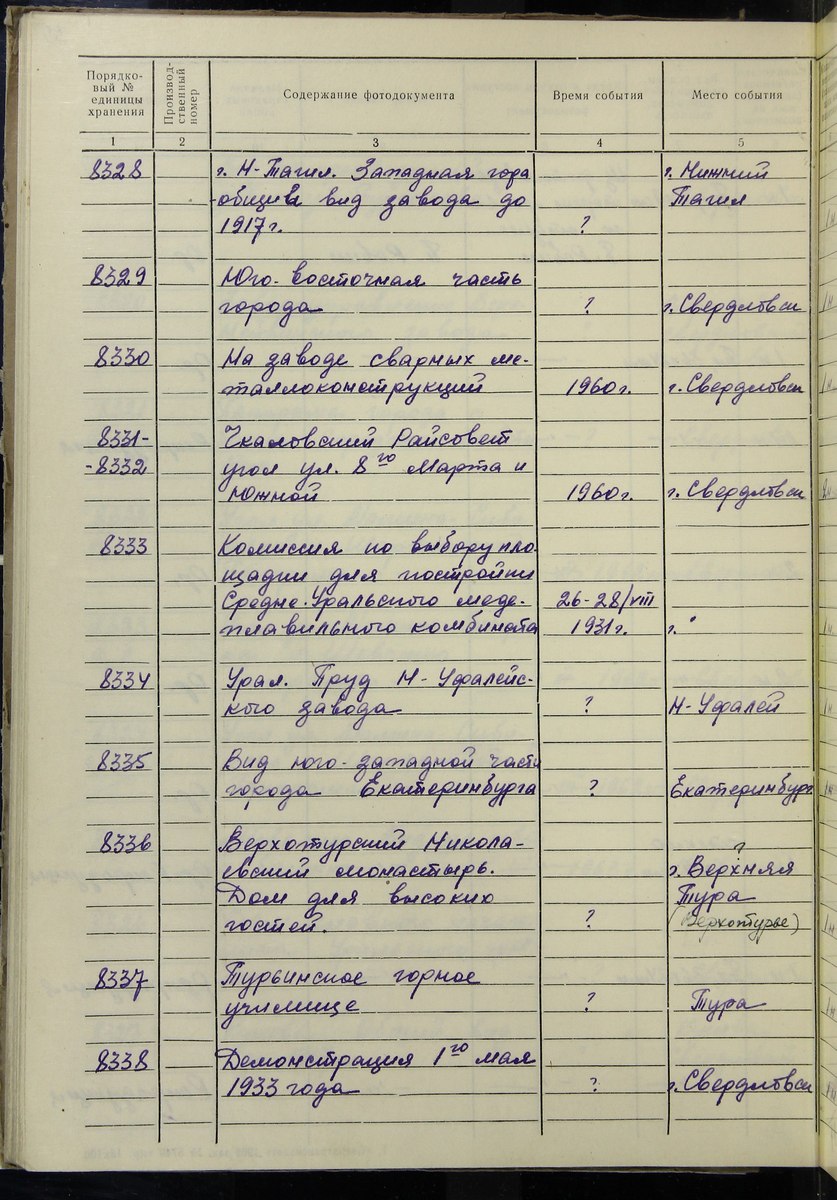 Порядко-
вый №
единицы
хранения
Производ-
ственный
номер
Содержание фотодокумента
Время события
Место события
1 2 3 4 5
8328 г. Н-Тагил. Западная гора г. Нижний
общий вид завода до Тагил
1917 г. ?
8329 Юго-восточная часть
города ? г. Свердловск
8330 На заводе сварных ме-
таллоконструкций 1960 г. г. Свердловск
8331- Чкаловский Райсовет
-8332 угол ул. 8го Марта и
Южной 1960 г. г. Свердловск
8333 Комиссия по выбору пло-
щадки для постройки
Средне-Уральского меде- 26-28/VIII
плавильного комбината 1931 г. г.
8334 Урал. Пруд Н-Уфалейс-
кого завода ? Н-Уфалей
8335 Вид юго-западной части
города Екатеринбурга ? Екатеринбург
8336 Верхотурский Никола- ?
евский монастырь. г. Верхняя
Дом для высоких Тура
гостей. ? (Верхотурье)
8337 Турьинское горное
училище ? Тура
8338 Демонстрация 1го мая
1933 года ? г. Свердловск